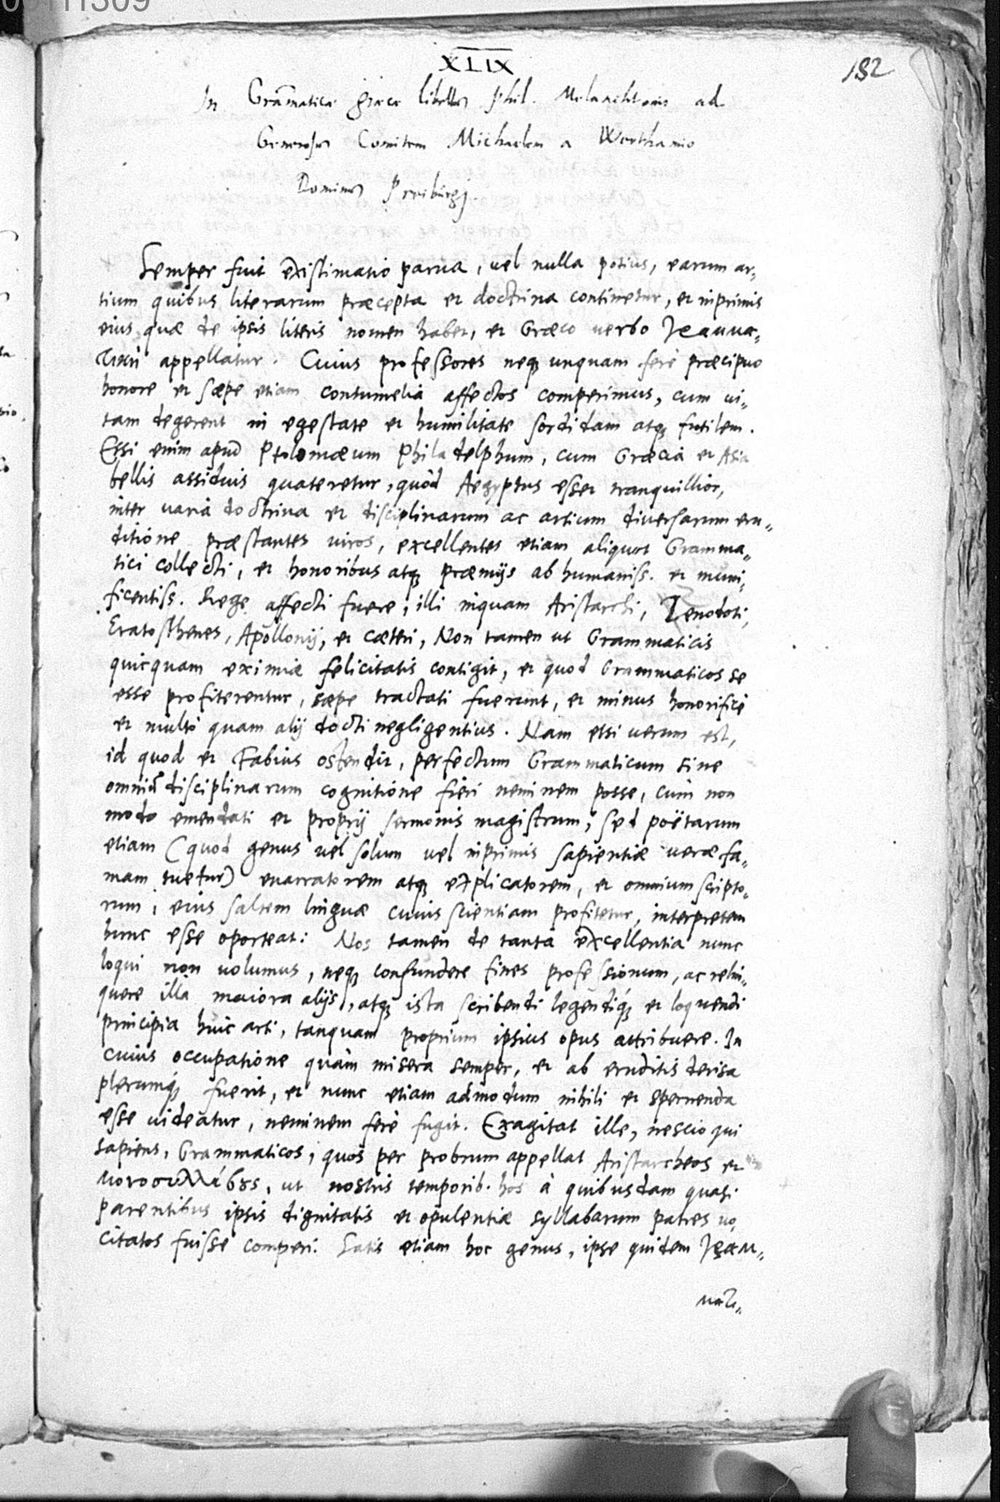 XLIX
182
In Grāmaticę gręcę libellos Phil. Melanchtonis ad
Generosum Comitem Michaelem a Werthamio
Dominum Preiburgi.
Semper fuit existimatio parua, uel nulla potius, earum ar-
tium quibus literarum præcepta et doctrina continetur, et inprimis
eius, quæ de ipsis literis nomen habet, et Græco uerbo γραμμα-
τικὴ appellatur. Cuius professores neq; unquam ferè præcipuo
honore et sæpe etiam contumelia affectos comperimus, cum ui-
tam degerent in egestate et humilitate sordidam atq; futilem.
Etsi enim apud Ptolomæum Philadelphum, cum Græcia et Asia
bellis assiduis quateretur, quòd Aegyptus esset tranquillior,
inter uaria doctrina et disciplinarum ac artium diuersarum eru-
ditione præstantes uiros, excellentes etiam aliquot Gramma-
tici collecti, et honoribus atq; præmijs ab humaniss. et muni-
ficentiss. Rege affecti fuere, illi inquam Aristarchi, Zenodoti,
Eratosthenes, Apollonij, et cæteri, Non tamen ut Grammaticis
quicquam eximiæ felicitatis contigit, et quod Grammaticos se
esse profiterentur, sæpe tractati fuerunt, et minus honorificè
et multò quam alij docti negligentius. Nam etsi uerum est,
id quod et Fabius ostendit, perfectum Grammaticum sine
omniū disciplinarum cognitione fieri neminem posse, cùm non
modo emendati et proprij sermonis magistrum, sed poëtarum
etiam (quod genus uel solum uel inprimis sapientiæ ueræ fa-
mam tuetur) enarratorem atq; explicatorem, et omnium scripto-
rum, eius saltem linguæ cuius scientiam profitetur, interpretem
hunc esse oporteat: Nos tamen de tanta excellentia nunc
loqui non uolumus, neq; confundere fines professionum, ac relin-
quere illa maiora alijs, atq; ista scribendi legendiq́; et loquendi
principia huic arti, tanquam proprium ipsius opus attribuere. In
cuius occupatione quàm misera semper, et ab eruditis derisa
plerumq́; fuerit, et nunc etiam admodum nihili et spernenda
esse uideatur, neminem ferè fugit. Exagitat ille, nescio qui
sapiens, Grammaticos, quos per probrum appellat Aristarcheos et
μονοσυλλάβους, ut nostris temporib. hos à quibusdam quasi
parentibus ipsis dignitatis et opulentiæ syllabarum patres uo-
citatos fuisse comperi. Satis etiam hoc genus, ipse quidem γραμ-
ματι-